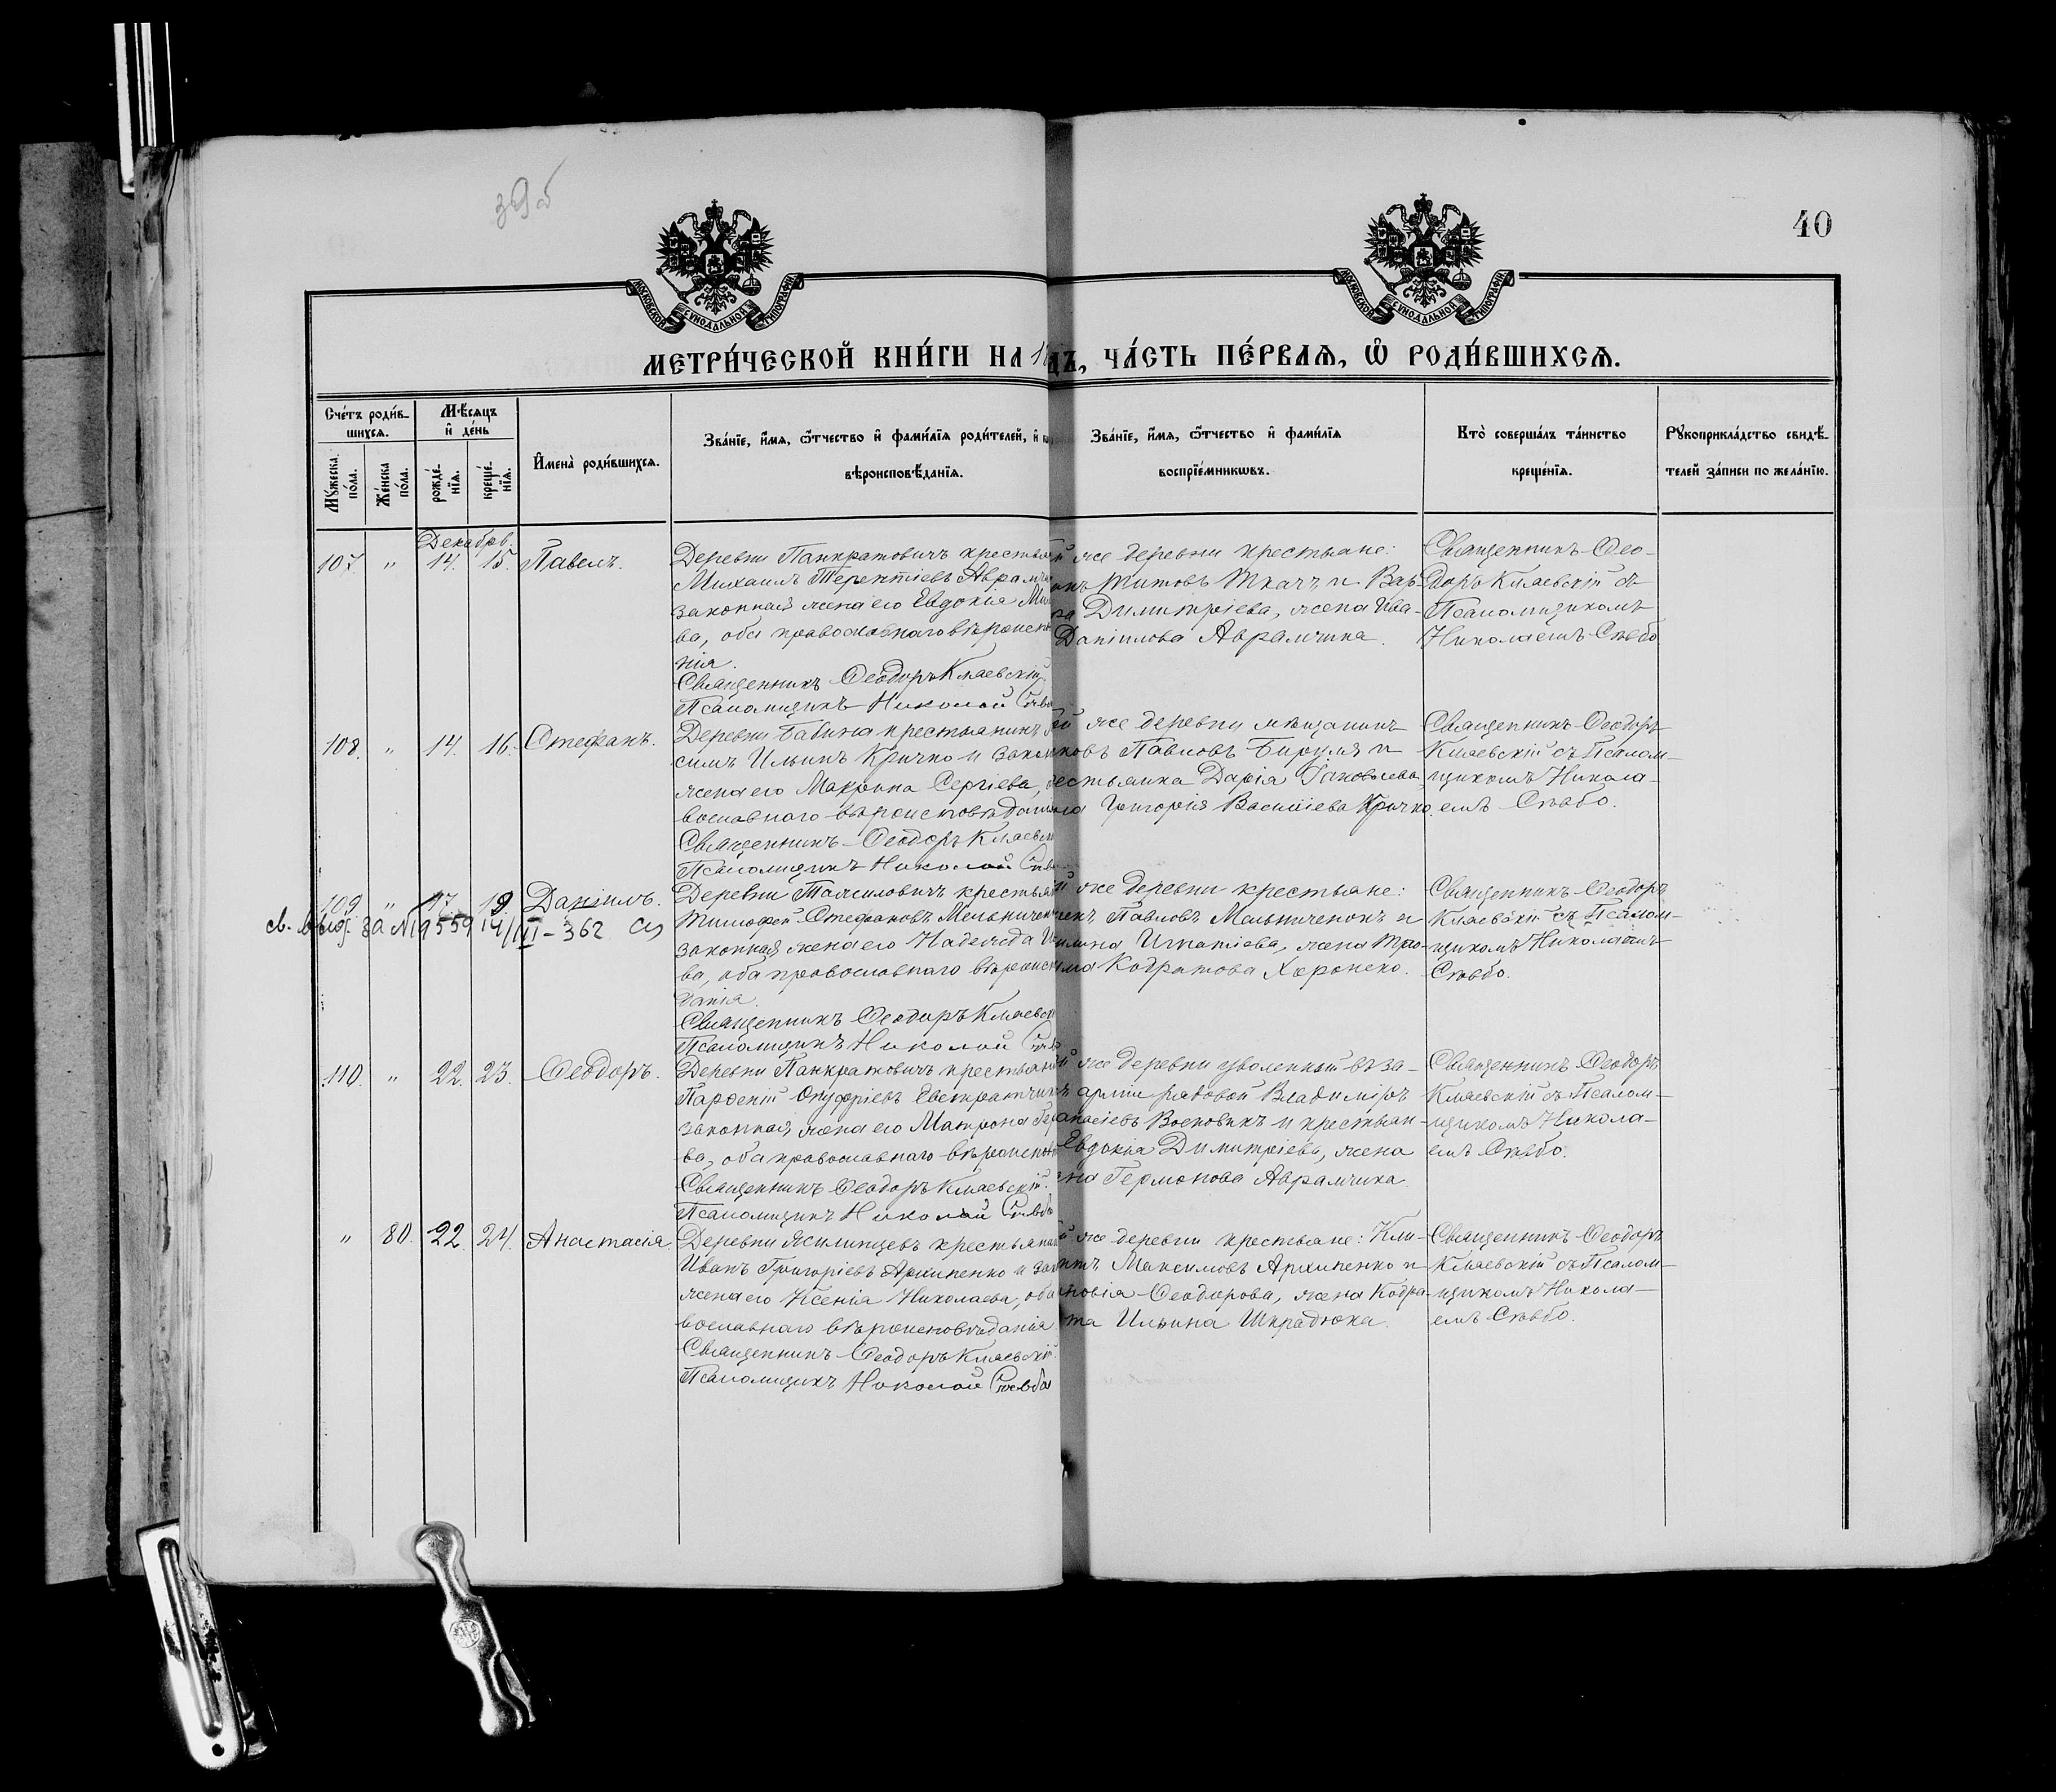 39об
40
МОСКОВСКОЙ СѴНОДАЛЬНОЙ ТИПОГРАФІИ
МОСКОВСКОЙ СѴНОДАЛЬНОЙ ТИПОГРАФІИ
МЕТРИ́ЧЕСКОЙ КНИ́ГИ НА 1
ДЪ, ЧА́СТЬ ПЕ́РВАЯ, Ѡ РОДИ́ВШИХСЯ.
Сче́тъ роди́в-
шихся.
Мꙋ́жеска по́ла.
Же́нска по́ла.
Мѣ́сяцъ
и҆ де́нь
рожде́-
нїя.
креще́-
нїя.
И҆мена̀ роди́вшихся.
Зва́нїе, и҆́мя, ѻ҆́тчество и҆ фами́лїя роди́телей, и҆
вѣроисповѣ́данїя.
Зва́нїе, и҆́мя, ѻ҆́тчество и҆ фами́лїя
воспрїе́мникѡвъ.
Кто̀ соверша́лъ та́инство
креще́нїя.
Рꙋкоприкла́дство свидѣ́-
телей за́писи по жела́нїю.
Декабрь.
107. " 14. 15. Павелъ.
Деревни Панкратовичъ крестья
Михаилъ Терентіевъ Аврамчи
законная жена его Евдокія Ми
ва, оба православнаго вѣроиспо
нія.
Священникъ Ѳеодоръ Кляевскій
Псаломщикъ Николай Стѣбо
й же деревни крестьяне:
Титовъ Ткачъ и Вар-
ра Димитріева, жена Ива-
Даніилова Аврамчика.
Священникъ Ѳео-
доръ Кляевскій съ
Псаломщикомъ
Николаемъ Стѣбо.
108. " 14. 16. Стефанъ.
Деревни Бабина крестьянинъ
симъ Ильинъ Кричко и закон
жена его Макрина Сергіева,
вославнаго вѣроисповѣдан
Священникъ Ѳеодоръ Кляевск
Псаломщикъ Николай Стѣбо
ой же деревни мѣщанинъ
ковъ Павловъ Бируля и
естьянка Дарія Іаковлева
на Григорія Василіева Кричко.
Священникъ Ѳеодоръ
Кляевскій съ Псалом-
щикомъ Никола-
емъ Стѣбо.
109. " 17. 19. Даніилъ.
св. выд. за № 19559 14/III-362
Деревни Толсиловичъ крестьян
Тимофей Стефановъ Мельничен
законная жена его Надежда И
ва, оба православнаго вѣроиспо
данія.
Священникъ Ѳеодоръ Кляевск
Псаломщикъ Николай Стѣбо
й же деревни крестьяне:
Павловъ Мельниченокъ и
Игнатіева, жена Тро-
има Кодратова Хоронеко.
Священникъ Ѳеодоръ
Кляевскій съ Псалом-
щикомъ Николаемъ
Стѣбо.
110. " 22. 23. Ѳеодоръ.
Деревни Панкратовичъ крестьяни
Парѳеній Онуфріевъ Евстратчик
законная жена его Матрона Гер
ва, оба православнаго вѣроиспов
Священникъ Ѳеодоръ Кляевскій.
Псаломщикъ Николай Стѣбо
й же деревни уволенный въ за-
арміи рядовой Владиміръ
анасіевъ Восковикъ и крестьян-
Евдокія Димитріева, жена
Германова Аврамчика.
Священникъ Ѳеодоръ
Кляевскій съ Псалом-
щикомъ Никола-
емъ Стѣбо.
" 80. 22. 24. Анастасія.
Деревни Ясилинцевъ крестьянин
Иванъ Григоріевъ Архипенко и зак
жена его Ксенія Николаева, оба
вославнаго вѣроисповѣданія.
Священникъ Ѳеодоръ Кляевскій.
Псаломщикъ Николай Стѣбо
й же деревни крестьяне: Кли-
Максимовъ Архипенко и
Ѳеодорова, жена Кодра-
та Ильина Шкрадюка.
Священникъ Ѳеодоръ
Кляевскій съ Псалом-
щикомъ Никола-
емъ Стѣбо.